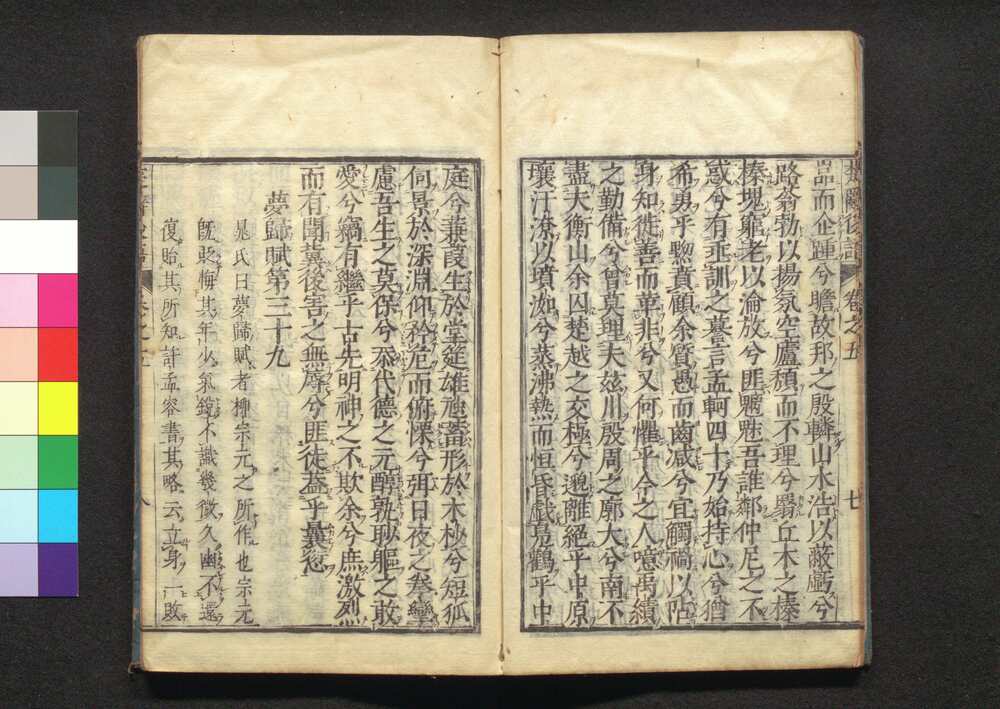 楚辭後語 卷之五 七
嵒而企踵兮瞻故邦之殷轔山水浩以蔽虧兮
路蓊勃以揚氛空廬頹而不理兮翳丘木之榛
榛塊窮老以淪放兮匪魑魅吾誰鄰仲尼之不
惑兮有垂訓之謩言孟軻四十乃始持心兮猶
希勇乎黝賁顧余質愚而齒減兮宜觸禍以阽
身知徙善而革非兮又何懼乎今之人噫禹績
之勤備兮曾莫理夫玆川殷周之廓大兮南不
盡夫衡山余囚楚越之交極兮邈離絕乎中原
壤汙潦以墳洳兮蒸沸熱而恒昏戲鳧鸛乎中
庭兮蒹葭生於堂筵雄虺蓄形於木杪兮短狐
伺景於深淵仰矜危而俯慄兮弭日夜之拳攣
慮吾生之莫保兮忝代德之元醇孰眇軀之敢
愛兮竊有繼乎古先明神之不欺余兮庶激烈
而有聞冀後害之無辱兮匪徒蓋乎曩愆
夢歸賦第三十九
晁氏曰夢歸賦者柳宗元之所作也宗元
既貶悔其年少氣銳不識幾微久幽不還
復貽其所知許孟容書其略云立身一敗